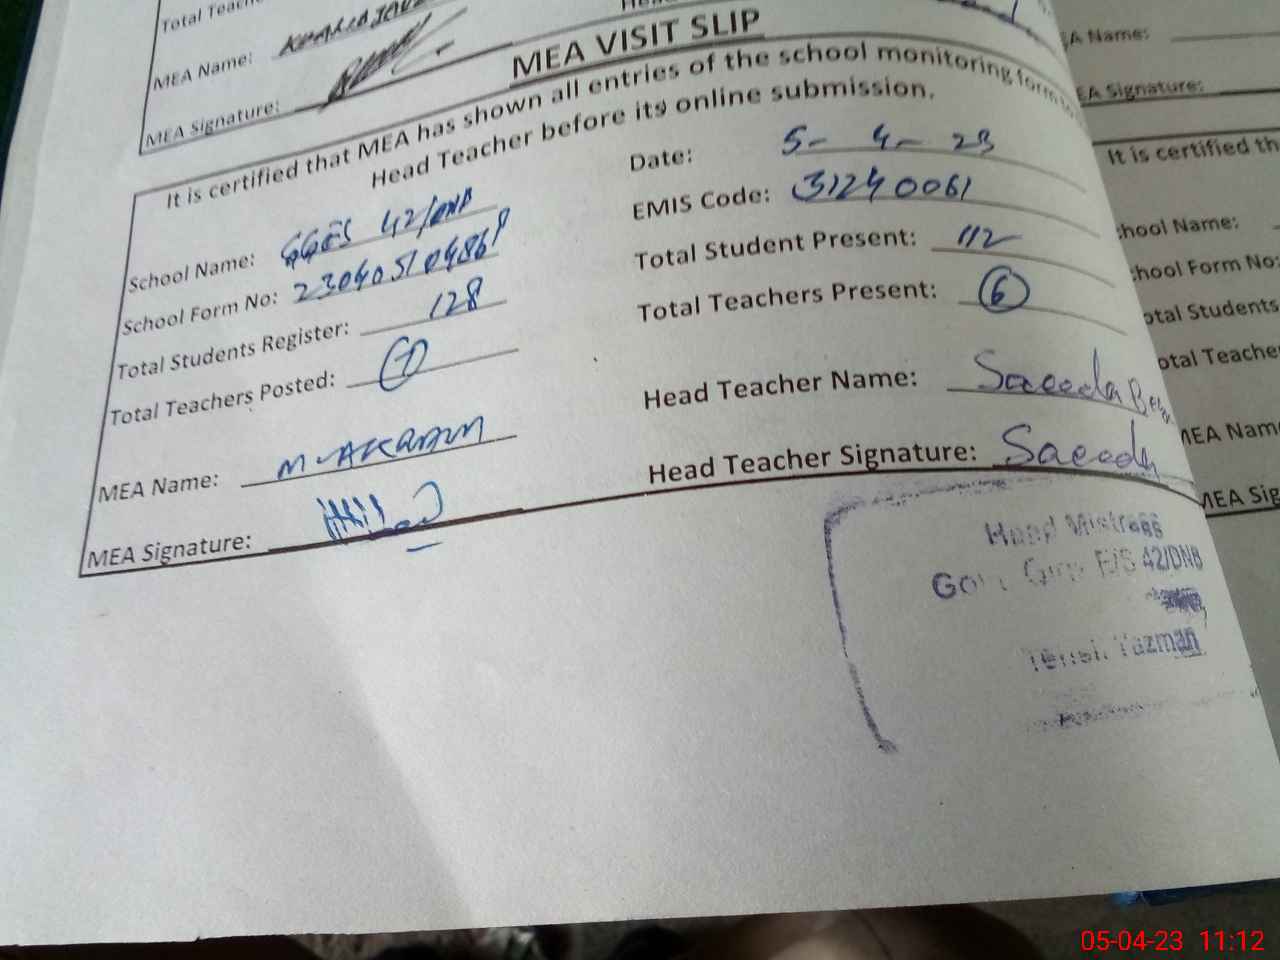 Total Teache
MEA Name: KHALID JAV
MEA Signature:
MEA VISIT SLIP
It is certified that MEA has shown all entries of the school monitoring form to
Head Teacher before its online submission.
Date: 5-4-23
School Name: GGES 42/DNB
EMIS Code: 31240061
School Form No: 23040510486
Total Student Present: 112
Total Students Register: 128
Total Teachers Present: 6
Total Teachers Posted: 7
Head Teacher Name: Saeeda
MEA Name: M-AKRAM
Head Teacher Signature: Saeeda
MEA Signature:
Head Mistress
Govt. Girls E/S 42/DNB
Tehsil Yazman
EA Name:
EA Signature:
It is certified th
hool Name:
hool Form No:
otal Students
otal Teache
MEA Nam
MEA Sig
05-04-23 11:12